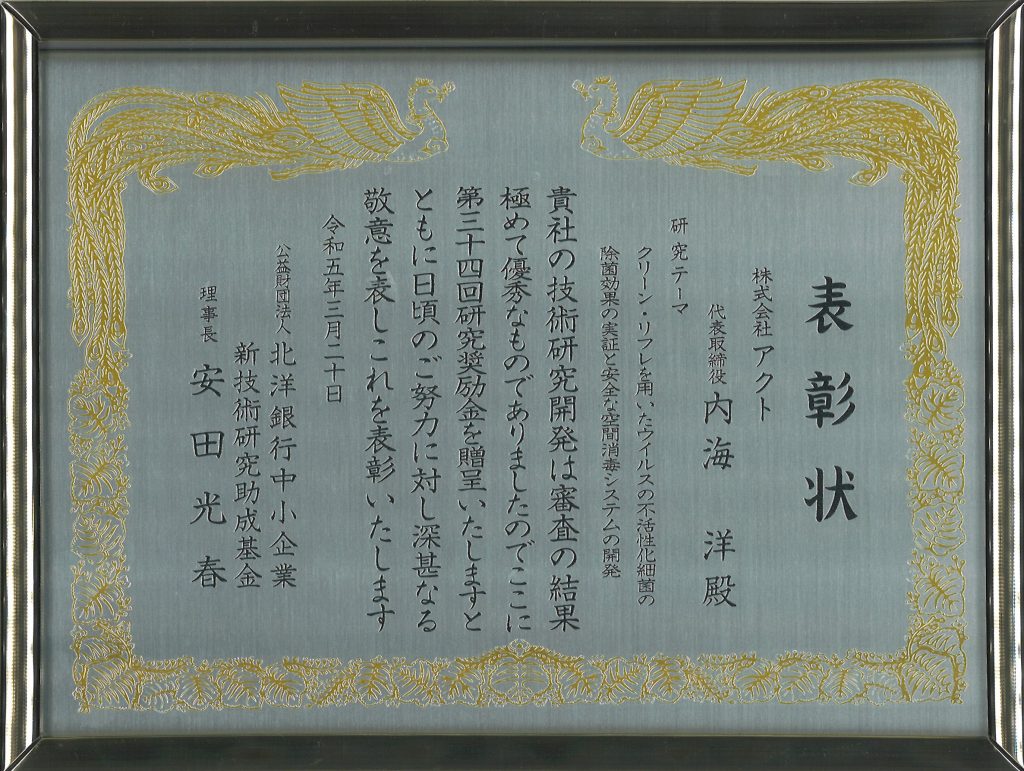 表彰状
株式会社 アクト
代表取締役 内海 洋 殿
研究テーマ
クリーン・リフレを用いたウイルスの不活性化細菌の
除菌効果の実証と安全な空間消毒システムの開発
貴社の技術研究開発は審査の結果
極めて優秀なものでありましたのでここに
第三十四回研究奨励金を贈呈いたしますと
ともに日頃のご努力に対し深甚なる
敬意を表しこれを表彰いたします
令和五年三月二十日
公益財団法人 北洋銀行中小企業
新技術研究助成基金
理事長 安田光春